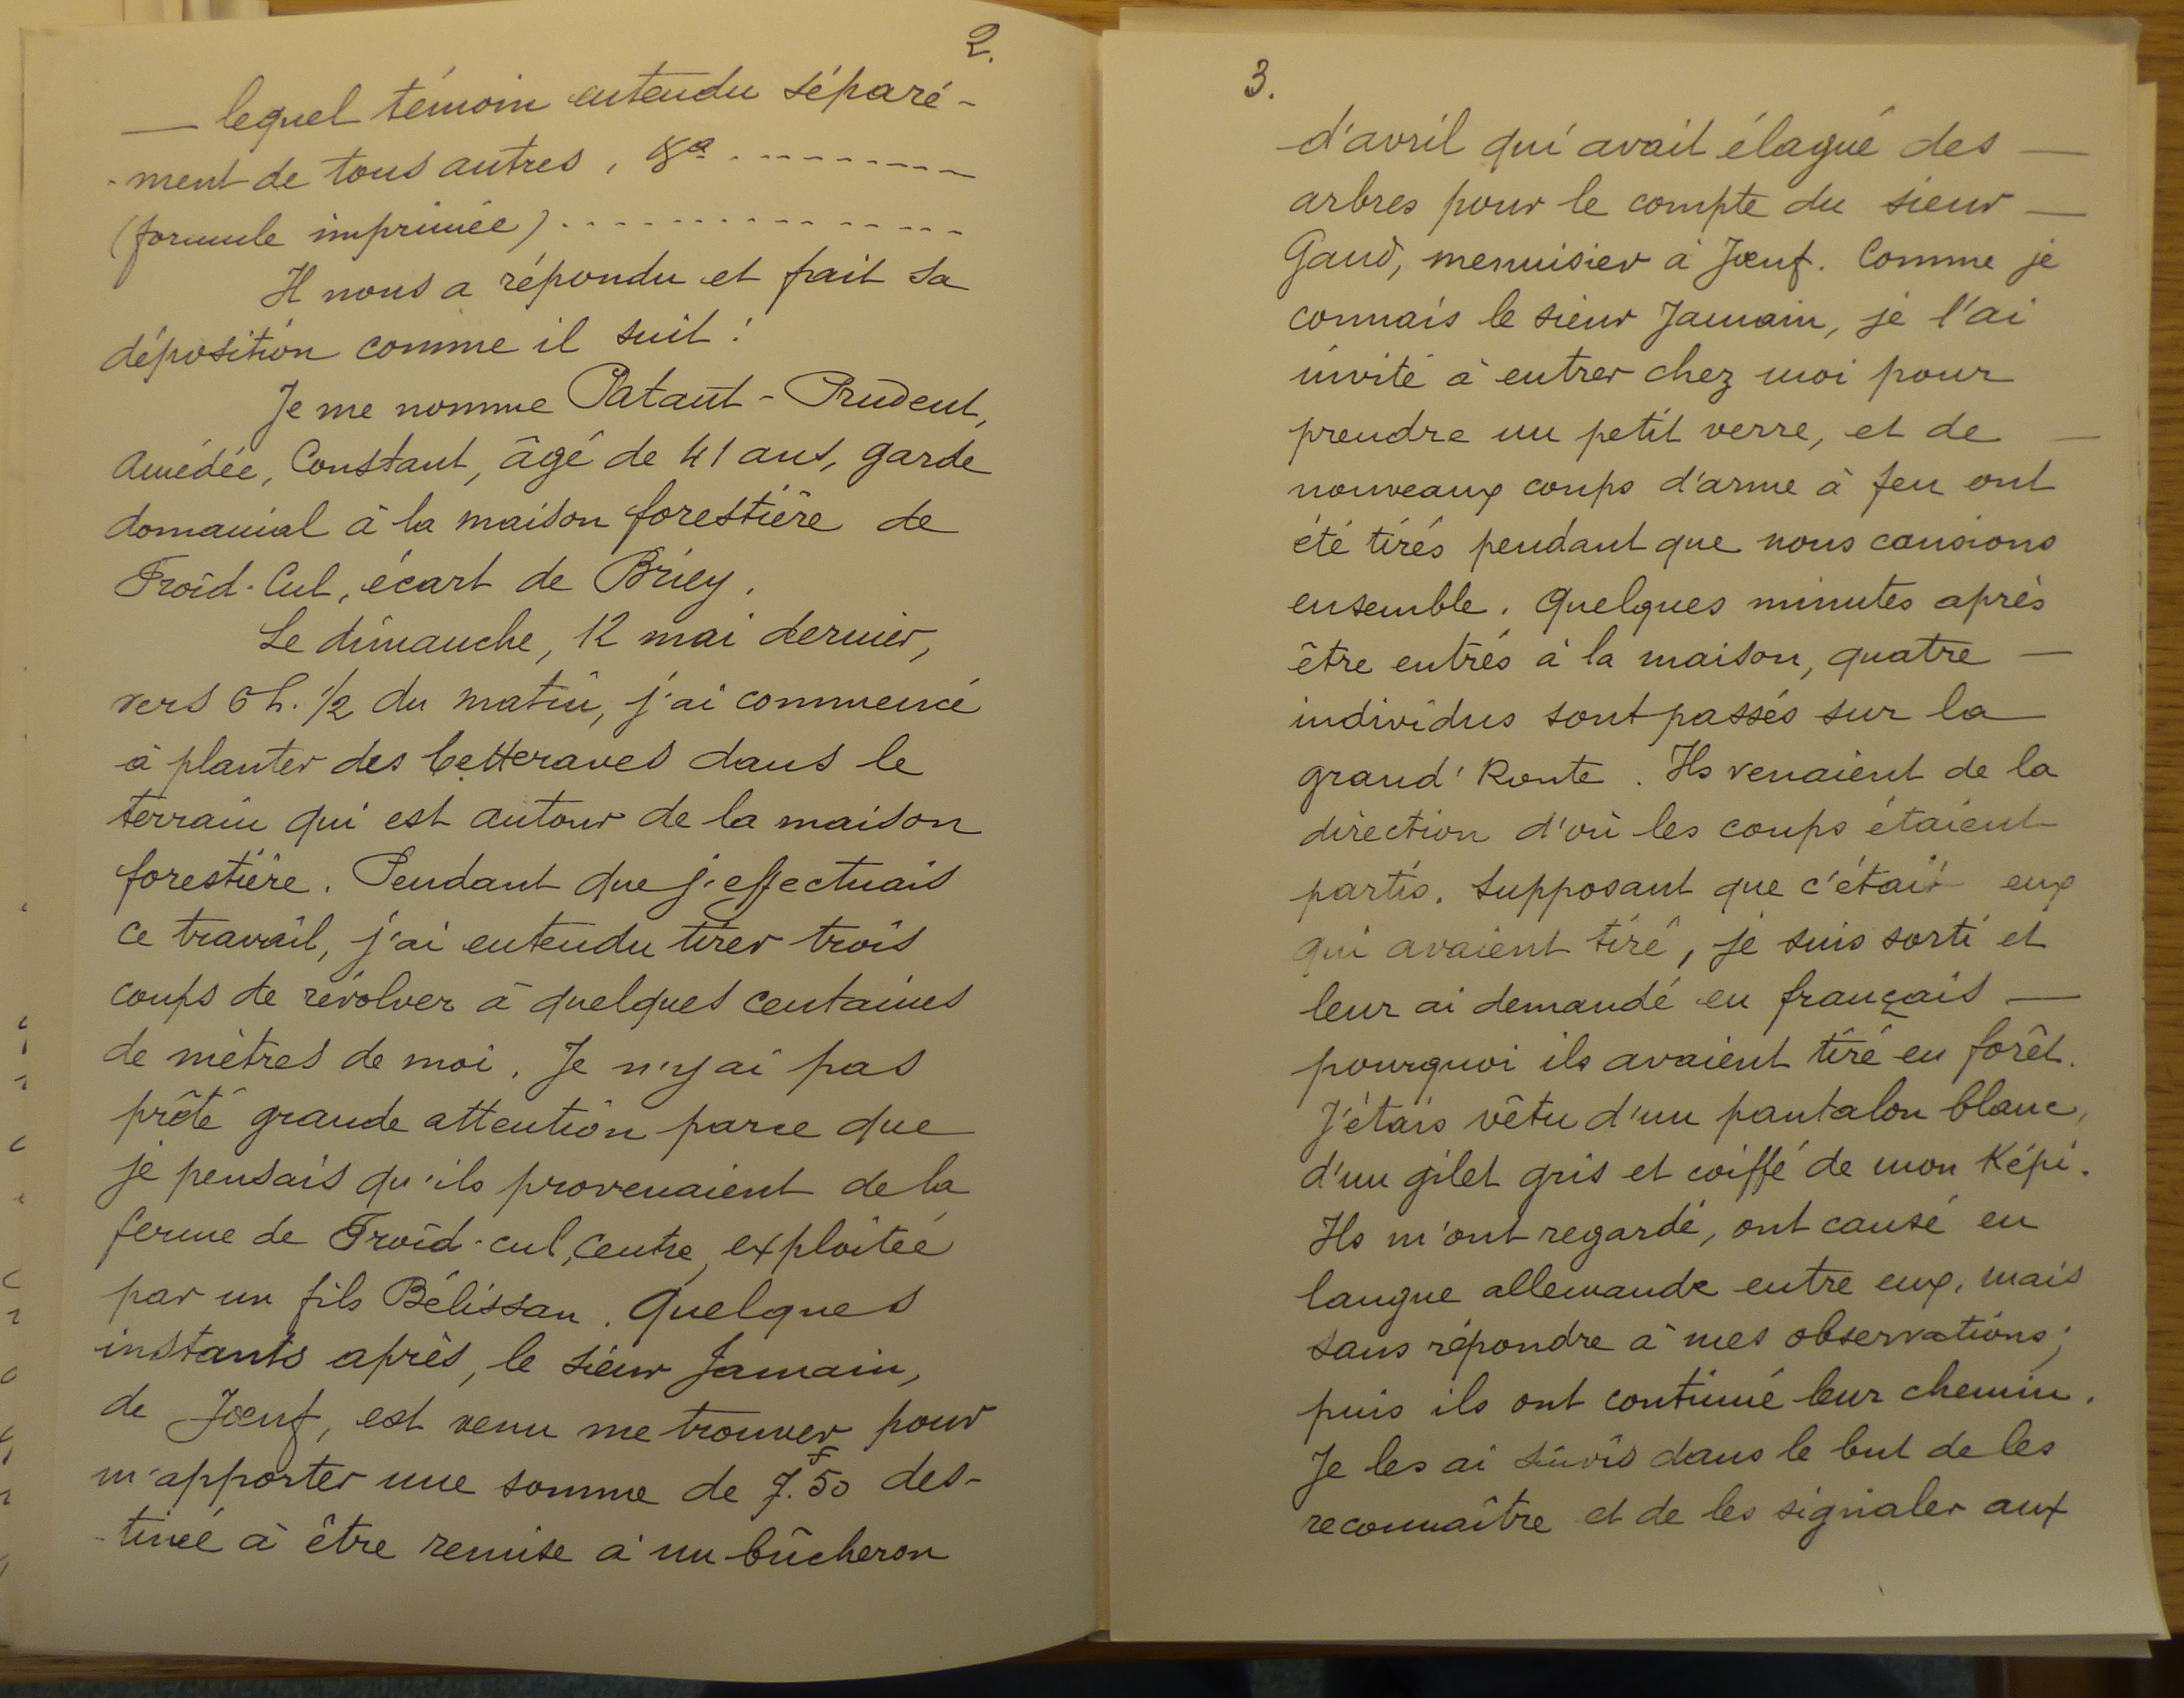 2.
— lequel témoin entendu séparé-
-ment de tous autres, &a ---------
(formule imprimée) ---------------
Il nous a répondu et fait sa
déposition comme il suit :
Je me nomme Pataut-Prudent,
Amédée, Constant, âgé de 41 ans, garde
domanial à la maison forestière de
Froid-Cul, écart de Briey.
Le dimanche, 12 mai dernier,
vers 6 h. 1/2 du matin, j'ai commencé
à planter des betteraves dans le
terrain qui est autour de la maison
forestière. Pendant que j'effectuais
ce travail, j'ai entendu tirer trois
coups de révolver à quelques centaines
de mètres de moi. Je n'y ai pas
prêté grande attention parce que
je pensais qu'ils provenaient de la
ferme de Froid-cul, centre, exploitée
par un fils Bélissan. Quelques
instants après, le sieur Jamain,
de Jœuf, est venu me trouver pour
m'apporter une somme de 7f.50 des-
-tinée à être remise à un bûcheron
3.
d'avril qui avait élagué des —
arbres pour le compte du sieur —
Gand, menuisier à Jœuf. Comme je
connais le sieur Jamain, je l'ai
invité à entrer chez moi pour
prendre un petit verre, et de —
nouveaux coups d'arme à feu ont
été tirés pendant que nous causions
ensemble. Quelques minutes après
être entrés à la maison, quatre —
individus sont passés sur la
grand' Route. Ils venaient de la
direction d'où les coups étaient
partis. Supposant que c'était eux
qui avaient tiré, je suis sorti et
leur ai demandé en français —
pourquoi ils avaient tiré en forêt.
J'étais vêtu d'un pantalon blanc,
d'un gilet gris et coiffé de mon Képi.
Ils m'ont regardé, ont causé en
langue allemande entre eux, mais
sans répondre à mes observations;
puis ils ont continué leur chemin.
Je les ai suivis dans le but de les
reconnaître et de les signaler aux